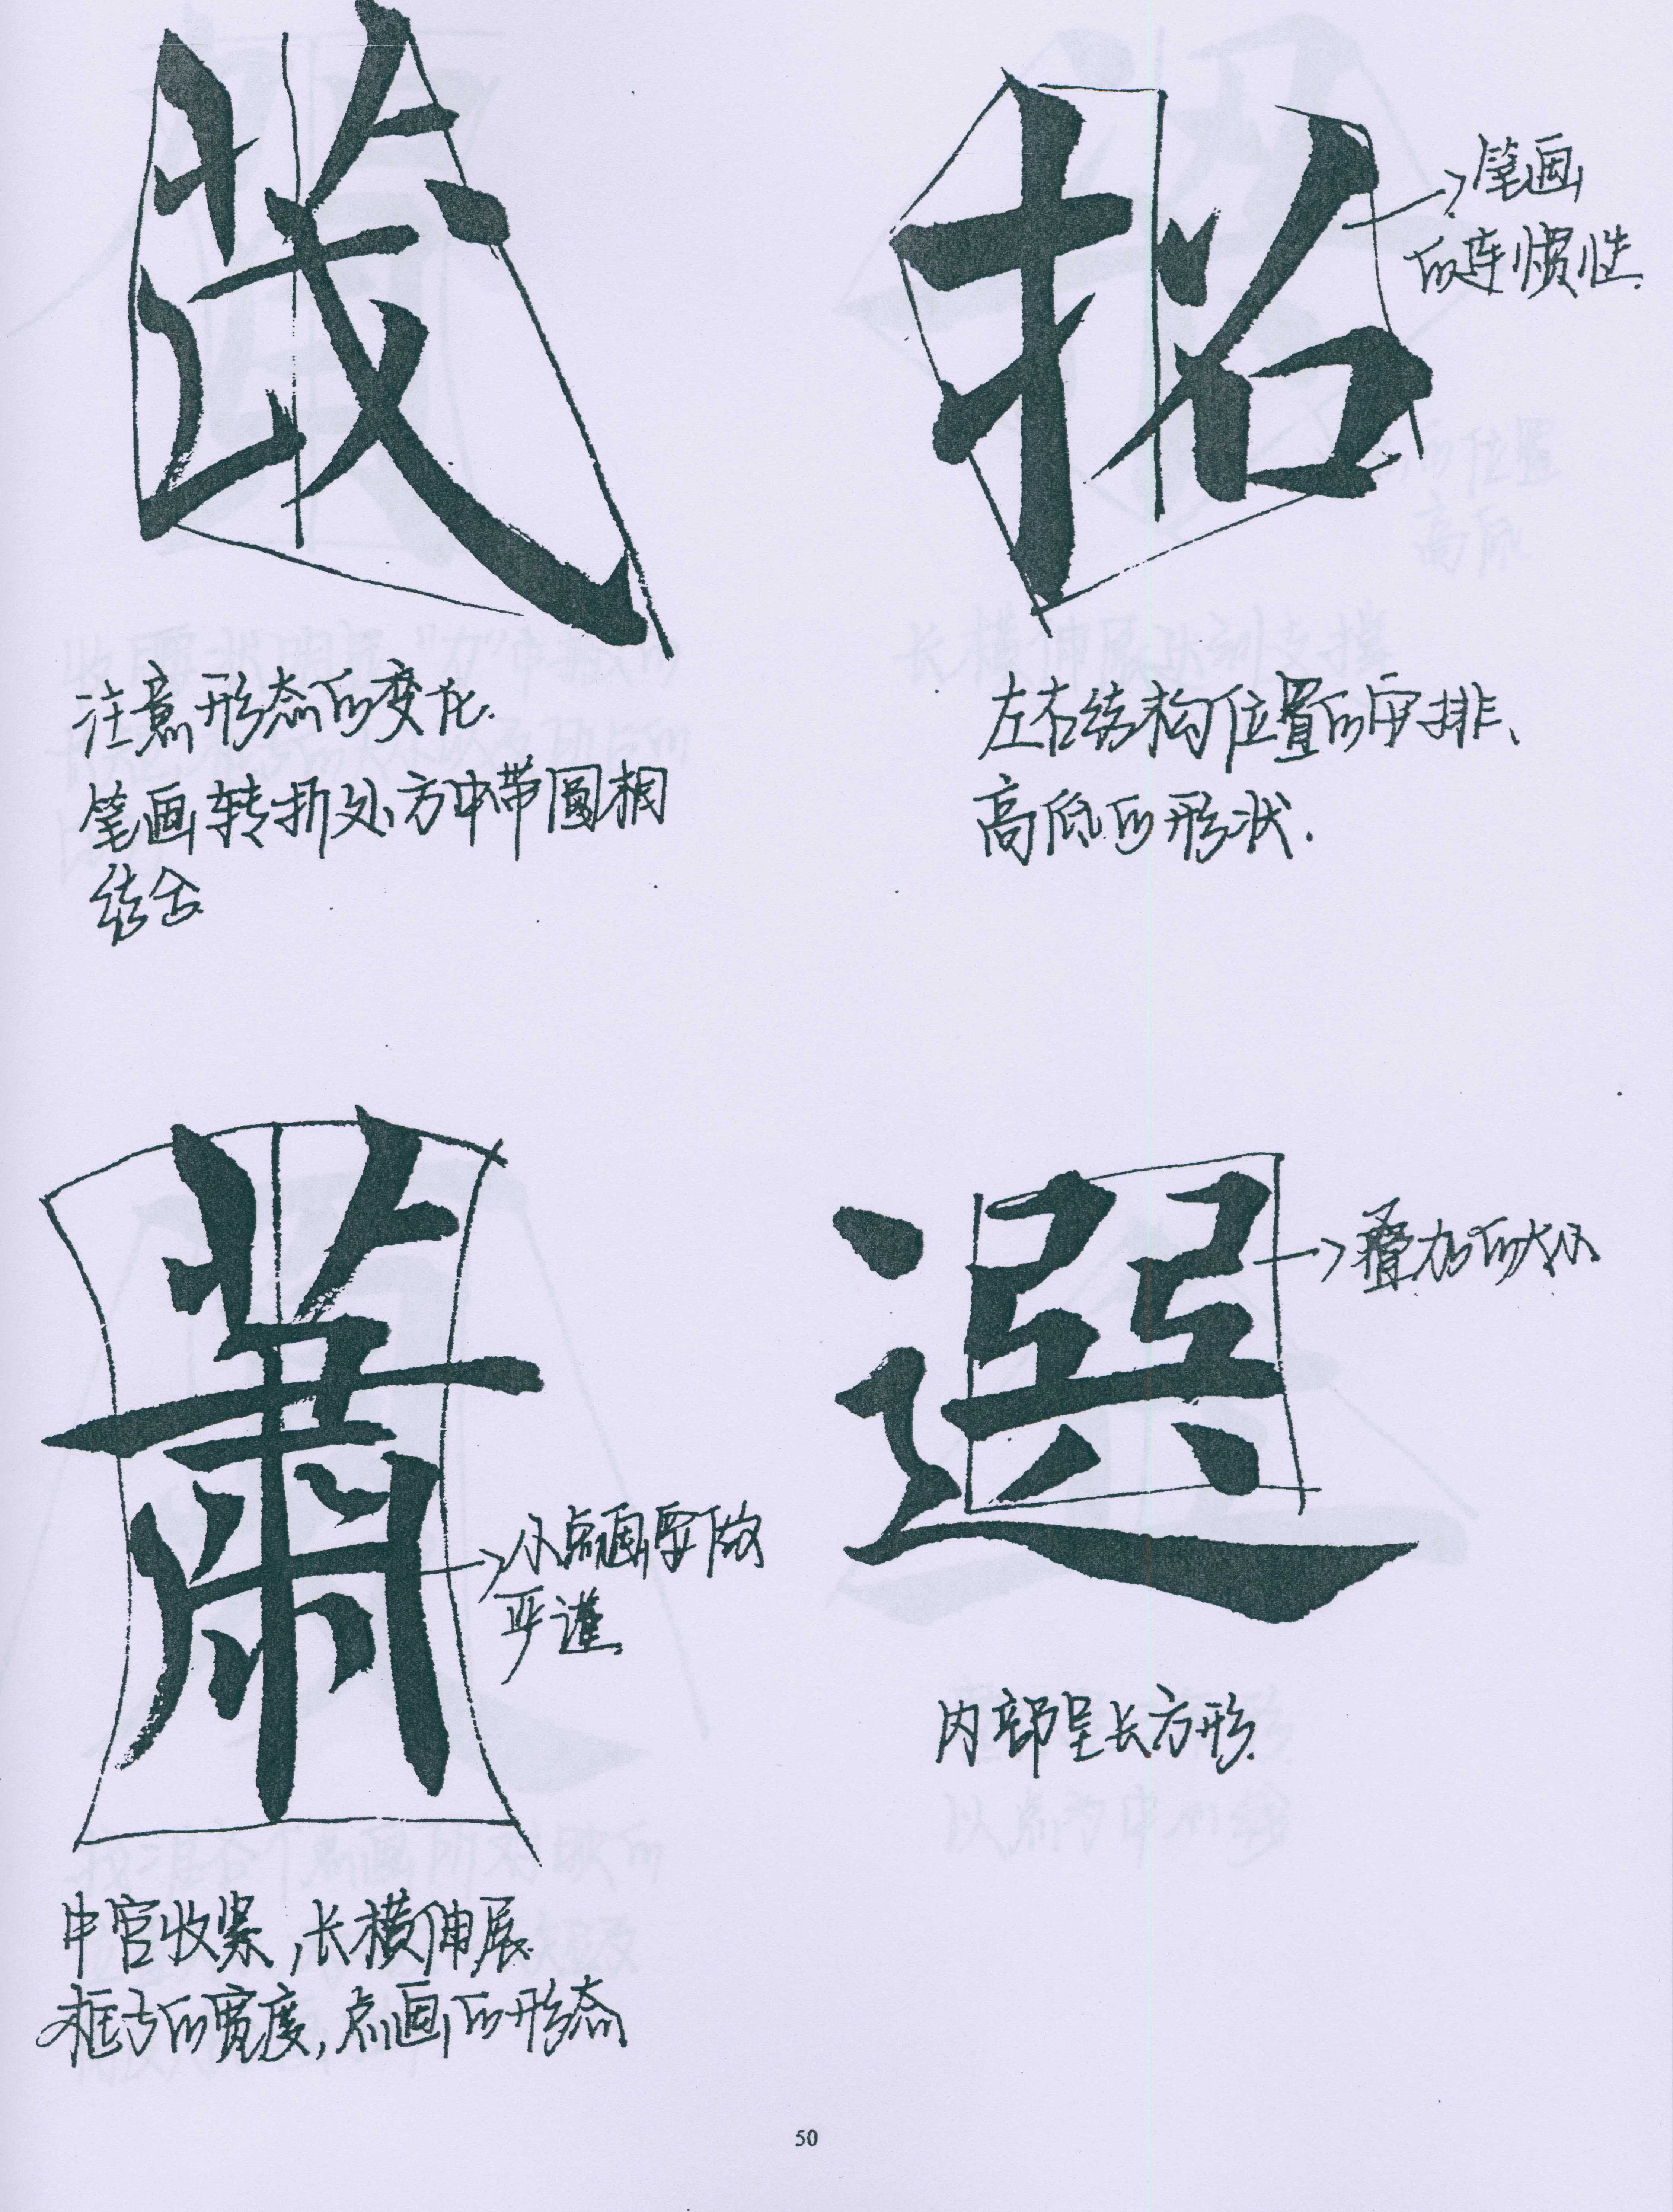 招
笔画
的连惯性.
注意形态的变化.
笔画转折处方中带圆相
结合
左右结构位置的安排、
高低的形状.
蕭
小点画要做
严谨
選
叠加的大小
内部呈长方形.
中宫收紧,长横伸展.
框的宽度,点画的形态
50